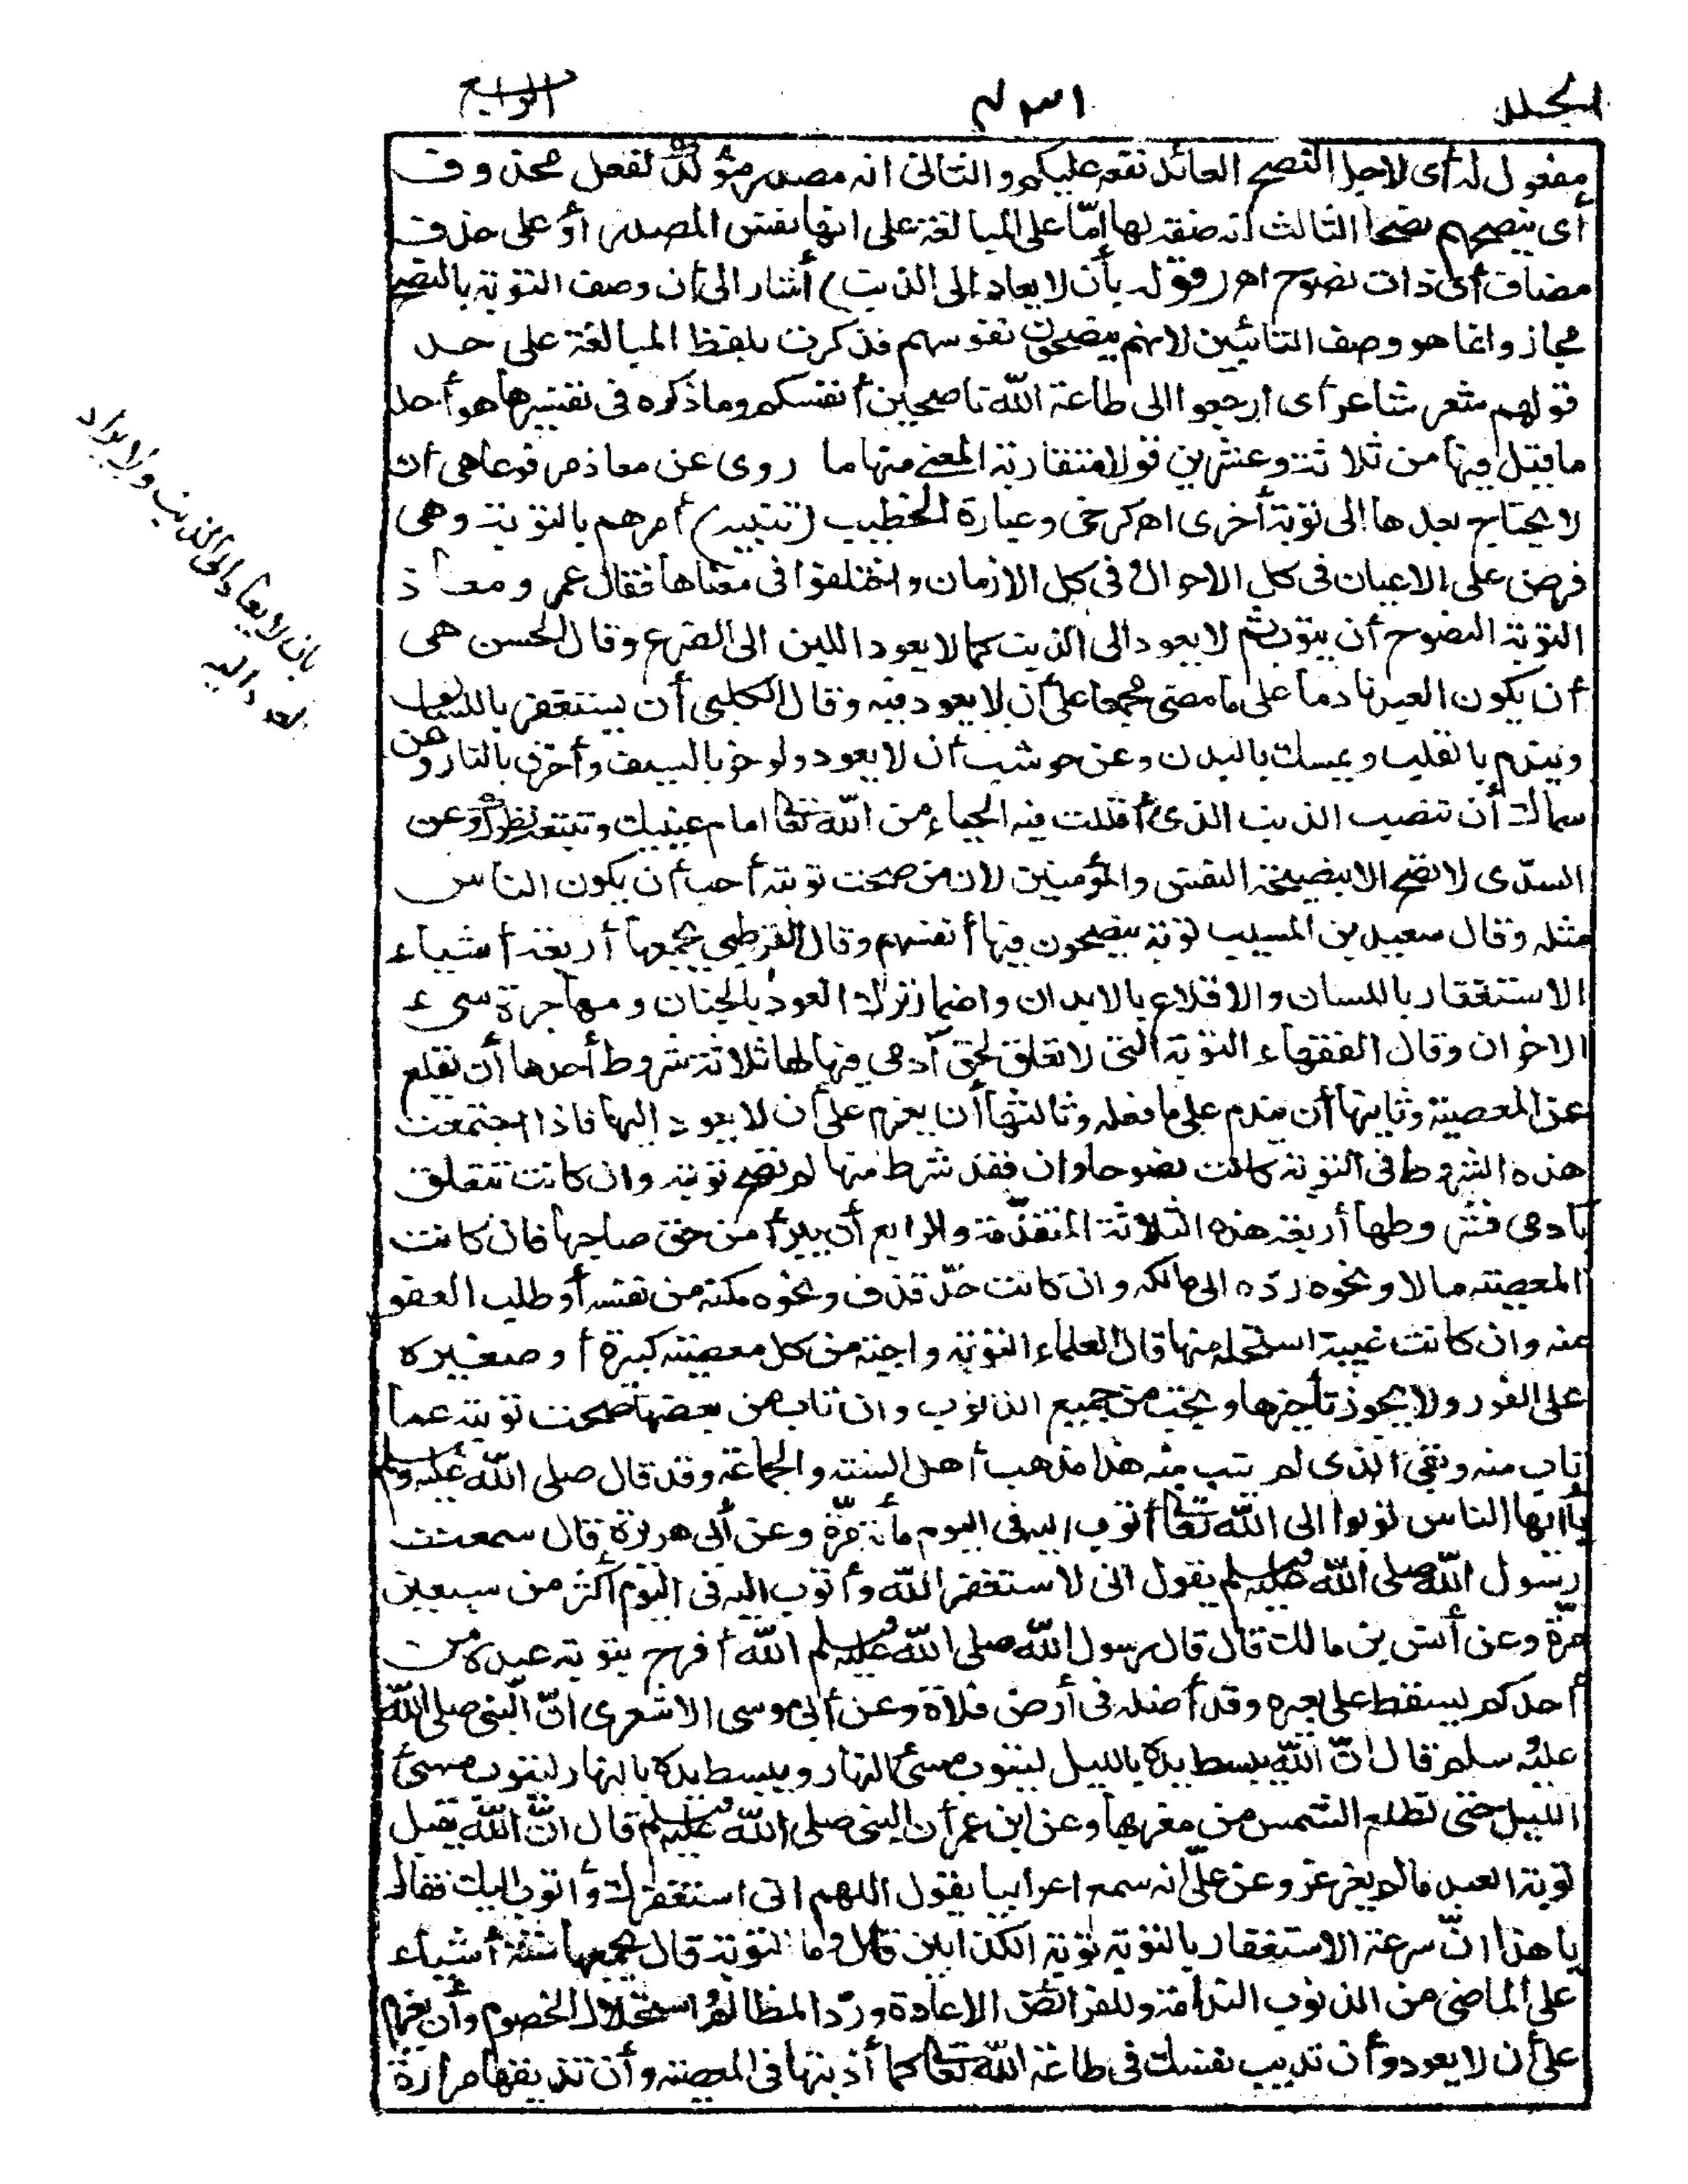 الجلد ٤٣١ الرابع
مفعول له أى لاجل النصح العائد نفعه عليكم والثانى انه مصدر مؤكد لفعل محذوف
أى ينصحهم نصحا الثالث انه صفة لها امّا على المبالغة على انها نفس المصدر أو على حذف
مضاف أى ذات نصوح اهـ (قوله بأن لا يعاد الى الذنب) أشار الى أن وصف التوبة بالنصح
مجاز وانما هو وصف التائبين لانهم ينصحون نفوسهم فذكرت بلفظ المبالغة على حد
قولهم شعر شاعر أى ارجعوا الى طاعة الله ناصحين أنفسكم وما ذكره فى تفسيرها هو أحد
ما قيل فيها من ثلاثة وعشرين قولا متقاربة المعنى منها ما روى عن معاذ مرفوعا هى أن
لا يحتاج بعدها الى توبة أخرى اهـ كرخى وعبارة الخطيب (تنبيه) أمرهم بالتوبة وهى
فرض على الاعيان فى كل الاحوال فى كل الازمان واختلفوا فى معناها فقال عمر ومعاذ
التوبة النصوح أن يتوب ثم لا يعود الى الذنب كما لا يعود اللبن الى الضرع وقال الحسن هى
أن يكون العبد نادما على ما مضى مجمعا على أن لا يعود فيه وقال الكلبى أن يستغفر باللسان
ويندم بالقلب ويمسك بالبدن وعن حوشب أن لا يعود ولو حز بالسيف وأحرق بالنار وعن
سماك أن تنصب الذنب الذى أقللت فيه الحياء من الله تعالى امام عينيك وتتبعه نظرك وعن
السدّى لا تصح الا بنصيحة النفس والمؤمنين لان من صحت توبته أحب أن يكون الناس
مثله وقال سعيد بن المسيب توبة ينصحون فيها أنفسهم وقال القرظى يجمعها أربعة أشياء
الاستغفار باللسان والاقلاع بالابدان واضمار ترك العود بالجنان ومهاجرة سىء
الاخوان وقال الفقهاء التوبة التى لا تعلق لحق آدمى فيها لها ثلاثة شروط أحدها أن يقلع
عن المعصية وثانيها أن يندم على ما فعله وثالثها أن يعزم على أن لا يعود اليها فاذا اجتمعت
هذه الشروط فى التوبة كانت نصوحا وان فقد شرط منها لم تصح توبته وان كانت تتعلق
بآدمى فشروطها أربعة هذه الثلاثة المتقدّمة والرابع أن يبرأ من حق صاحبها فان كانت
المعصية مالا ونحوه ردّه الى مالكه وان كانت حدّ قذف ونحوه مكنه من نفسه أو طلب العفو
عنه وان كانت غيبة استحله منها قال العلماء التوبة واجبة من كل معصية كبيرة أو صغيره
على الفور ولا يجوز تأخيرها ويجب من جميع الذنوب وان تاب من بعضها صحت توبته عما
تاب منه وبقى الذى لم يتب منه هذا مذهب أهل السنة والجماعة وقد قال صلى الله عليه وسلم
يأأيها الناس توبوا الى الله تعالى أتوب اليه فى اليوم مأئة مرّة وعن أبى هريرة قال سمعت
رسول الله صلى الله عليه وسلم يقول انى لاستغفر الله وأتوب اليه فى اليوم أكثر من سبعين
مرّة وعن أنس بن مالك قال قال رسول الله صلى الله عليه وسلم الله أفرح بتوبة عبده من
أحدكم يسقط على بعيره وقد أضله فى أرض فلاة وعن أبى موسى الاشعرى انّ النبى صلى الله
عليه وسلم قال انّ الله يبسط يده بالليل ليتوب مسئ النهار ويبسط يده بالنهار ليتوب مسئ
الليل حتى تطلع الشمس من مغربها وعن ابن عمر أن النبى صلى الله عليه وسلم قال انّ الله يقبل
توبة العبد مالم يغرغر وعن علىّ انه سمع اعرابيا يقول اللهم انى استغفرك وأتوب اليك فقال
يا هذا انّ سرعة الاستغفار بالتوبة توبة الكذابين قال وما التوبة قال يجمعها ستة أشياء
على الماضى من الذنوب الندامة وللفرائض الاعادة وردّ المظالم واستحلال الخصوم وأن يعزم
على أن لا يعود وأن تذيب نفسك فى طاعة الله تعالى كما أذبتها فى المعصية وأن تذيقها مرارة
بان لا يعاد الى الذنب ولا يراد
العود اليه